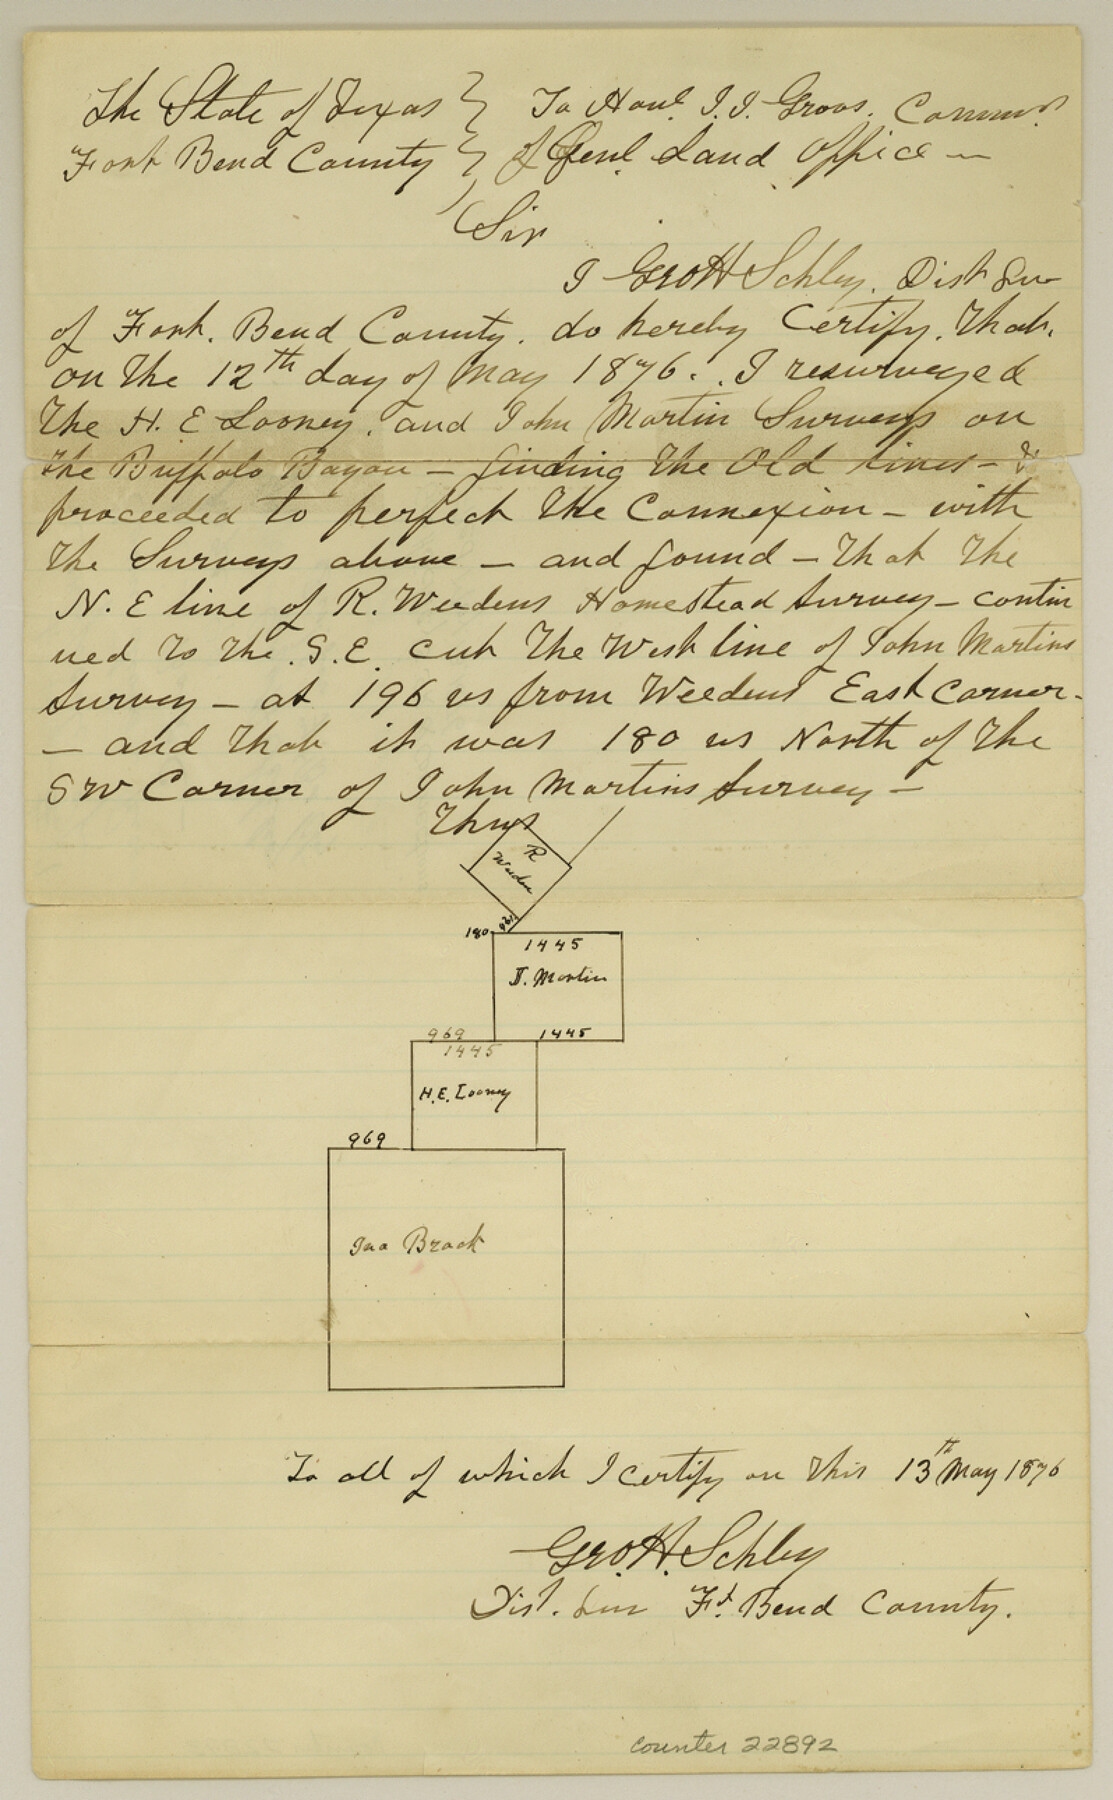 The State of Texas } To Honl. J. J. Groos. Commnr
Fort Bend County } of Genl. Land Office —
Sir
I Geo H Schley. Dist Sur
of Fort. Bend County. do hereby Certify. that.
on the 12th day of May 1876. I resurveyed
the H. E Looney. and John Martin Surveys on
the Buffalo Bayou — finding the Old lines — &
proceeded to perfect the Connexion — with
the Surveys above — and found — that the
N. E line of R. Weedens Homestead Survey — contin
ued to the S. E. cut the West line of John Martins
Survey — at 196 vs from Weedens East Corner —
— and that it was 180 vs North of the
SW Corner of John Martins Survey —
Thus
R
Weeden
180 196
1445
J. Martin
969 1445
1445
H. E. Looney
969
Jno Brock
To all of which I certify on this 13th May 1876
Geo. H. Schley
Dist. Sur Ft. Bend County.
counter 22892